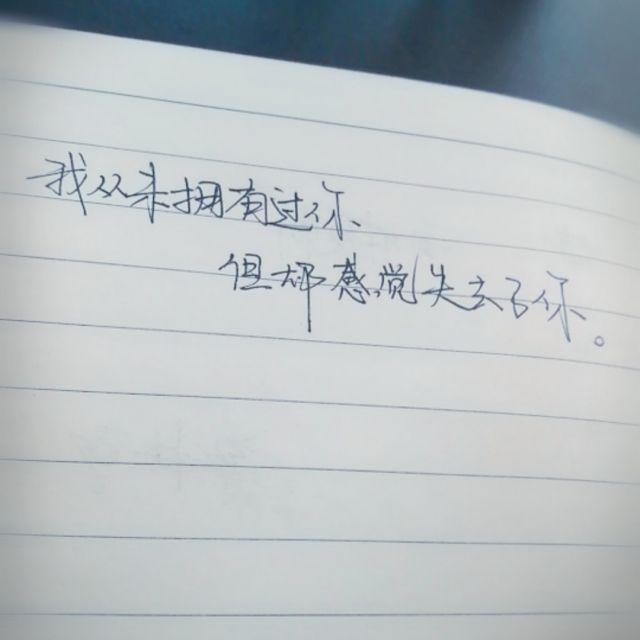 我从未拥有过你
但却感觉失去了你。